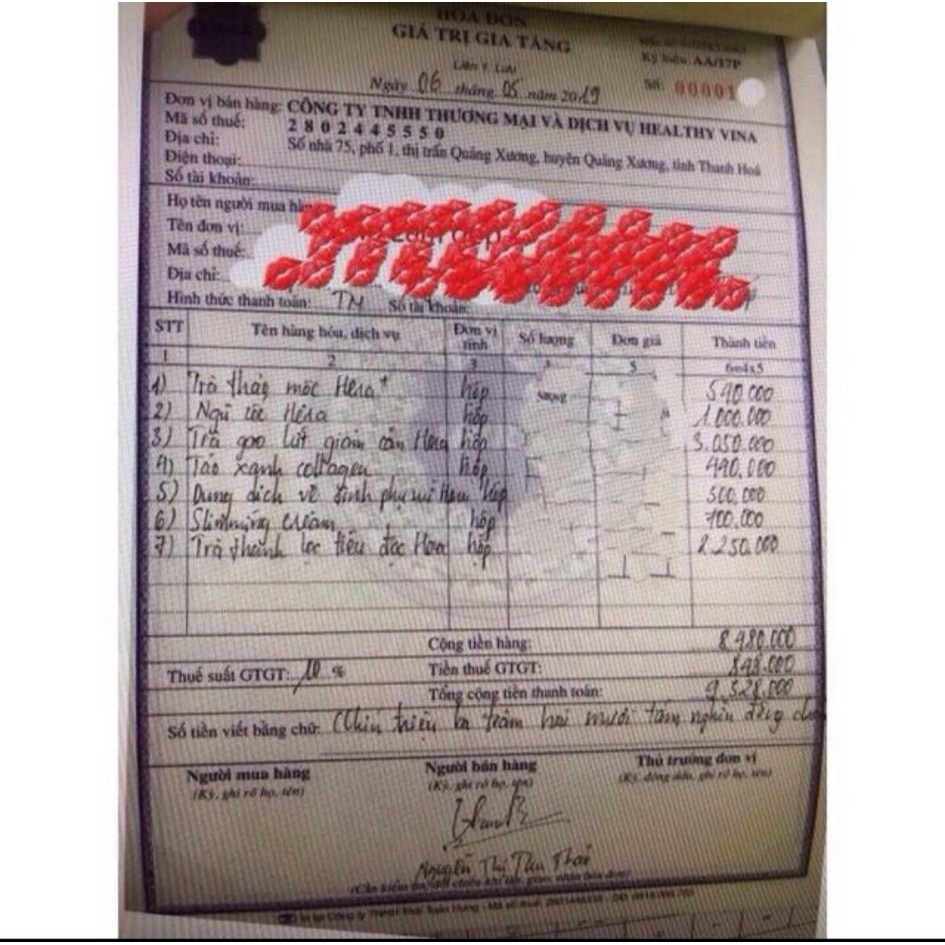 HÓA ĐƠN
GIÁ TRỊ GIA TĂNG
Ký hiệu: AA/17P
Liên 1: Lưu
Số: 00001
Ngày 06 tháng 05 năm 2019
Đơn vị bán hàng: CÔNG TY TNHH THƯƠNG MẠI VÀ DỊCH VỤ HEALTHY VINA
Mã số thuế: 2802445550
Địa chỉ: Số nhà 75, phố 1, thị trấn Quảng Xương, huyện Quảng Xương, tỉnh Thanh Hoá
Điện thoại:
Số tài khoản:
Họ tên người mua hàng
Tên đơn vị:
Mã số thuế:
Địa chỉ:
Hình thức thanh toán: TM Số tài khoản:
STT Tên hàng hóa, dịch vụ Đơn vị tính Số lượng Đơn giá Thành tiền
1 2 3 4 5 6=4x5
1) Trà thảo mộc Hera+ hộp 590.000
2) Ngũ cốc Hera hộp 1.000.000
3) Trà gạo lứt giảm cân Hera hộp 3.050.000
4) Táo xanh collagen hộp 490.000
5) Dung dịch vệ sinh phụ nữ Hera hộp 500.000
6) Slimming cream hộp 700.000
7) Trà thanh lọc tiêu độc Hera hộp 2.250.000
Cộng tiền hàng: 8.480.000
Thuế suất GTGT: 10 % Tiền thuế GTGT: 848.000
Tổng cộng tiền thanh toán: 9.328.000
Số tiền viết bằng chữ: Chín triệu ba trăm hai mươi tám nghìn đồng
Người mua hàng Người bán hàng Thủ trưởng đơn vị
(Ký, ghi rõ họ, tên) (Ký, ghi rõ họ, tên) (Ký, đóng dấu, ghi rõ họ, tên)
Nguyễn Thị Thu Thái